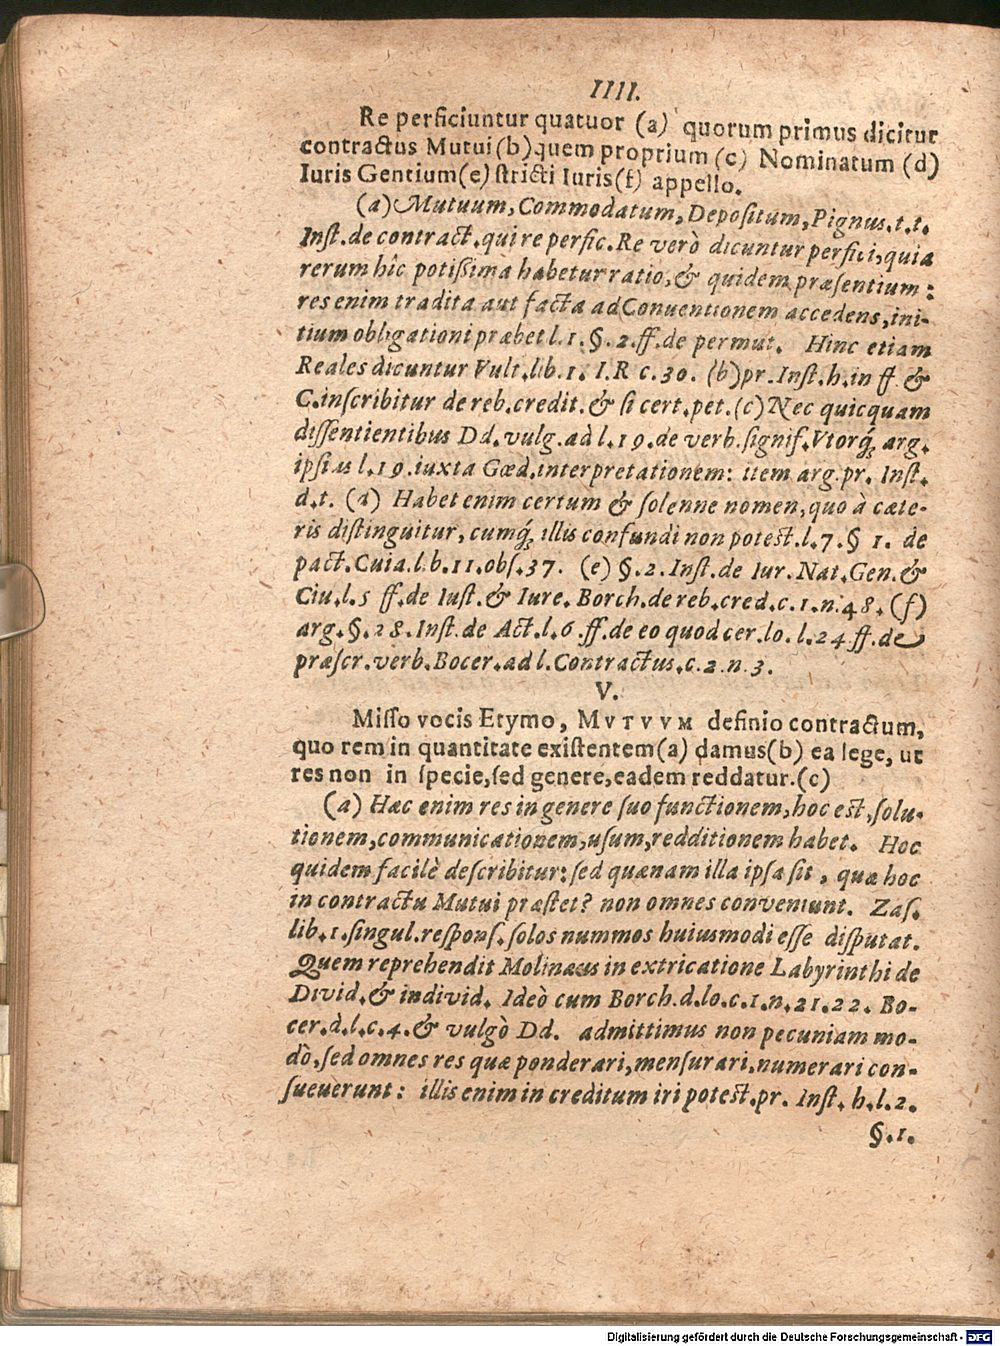 IIII.
Re perficiuntur quatuor (a) quorum primus dicitur
contractus Mutui (b) quem proprium (c) Nominatum (d)
Iuris Gentium (e) ſtricti Iuris (f) appello.
(a) Mutuum, Commodatum, Depoſitum, Pignus. t. t.
Inſt. de contract. qui re perfic. Re verò dicuntur perfici, quia
rerum hîc potißima habetur ratio, & quidem præſentium:
res enim tradita aut facta ad Conuentionem accedens, ini-
tium obligationi præbet l. 1. §. 2. ff. de permut. Hinc etiam
Reales dicuntur Vult. lib. 1. I. R c. 30. (b) pr. Inſt. h. in ff &
C. inſcribitur de reb. credit. & ſi cert. pet. (c) Nec quicquam
diſſentientibus Dd. vulg. ad l. 19. de verb. ſignif. Vtorq́; arg.
ipſius l. 19. iuxta Gœd. interpretationem: item arg. pr. Inſt.
d. t. (d) Habet enim certum & ſolenne nomen, quo à cæte-
ris diſtinguitur, cumq́; illis confundi non poteſt. l. 7. § 1. de
pact. Cuia. lib. 11. obſ. 37. (e) §. 2. Inſt. de Iur. Nat. Gen. &
Ciu. l. 5 ff. de Iuſt. & Iure. Borch. de reb. cred. c. 1. n. 48. (f)
arg. §. 28. Inſt. de Act. l. 6. ff. de eo quod cer. lo. l. 24 ff. de
præſcr. verb. Bocer. ad l. Contractus. c. 2. n. 3.
V.
Miſſo vocis Etymo, MVTVVM definio contractum,
quo rem in quantitate exiſtentem (a) damus (b) ea lege, ut
res non in ſpecie, ſed genere, eadem reddatur. (c)
(a) Hæc enim res in genere ſuo functionem, hoc eſt, ſolu-
tionem, communicationem, uſum, redditionem habet. Hoc
quidem facilè deſcribitur: ſed quænam illa ipſa ſit, quæ hoc
in contractu Mutui præſtet? non omnes conveniunt. Zaſ.
lib. 1. ſingul. reſponſ. ſolos nummos huiusmodi eſſe diſputat.
Quem reprehendit Molinæus in extricatione Labyrinthi de
Divid. & individ. Ideò cum Borch. d. lo. c. 1. n. 21. 22. Bo-
cer. d. l. c. 4. & vulgò Dd. admittimus non pecuniam mo-
dò, ſed omnes res quæ ponderari, menſurari, numerari con-
ſueuerunt: illis enim in creditum iri poteſt. pr. Inſt. h. l. 2.
§. 1.
Digitalisierung gefördert durch die Deutsche Forschungsgemeinschaft - DFG